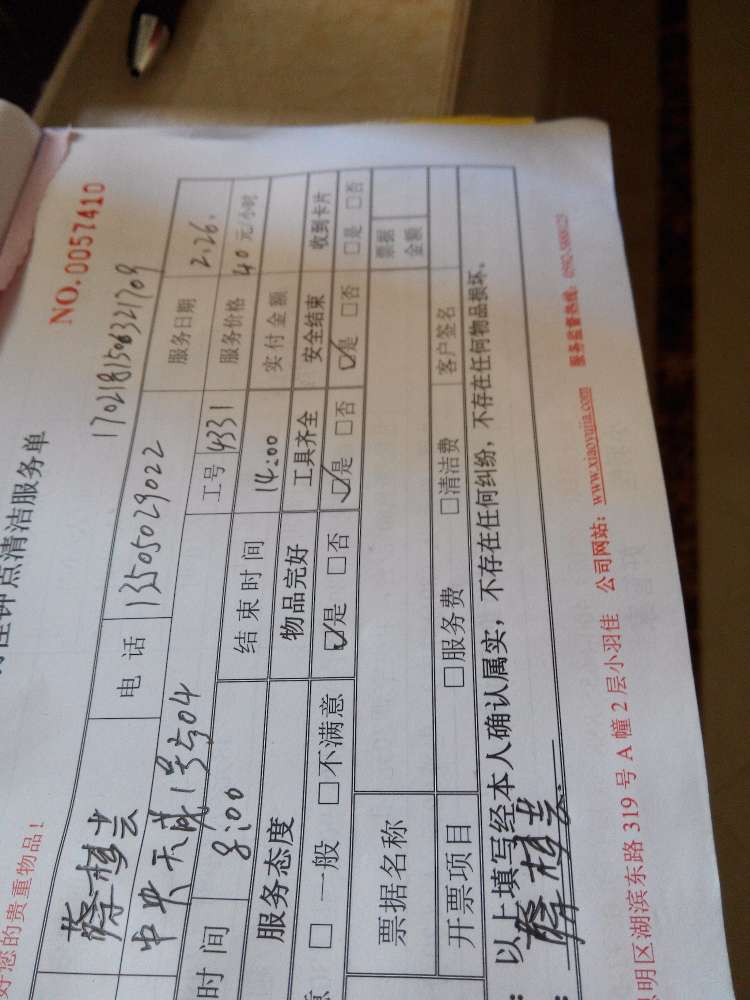 NO.0057410
钟点清洁服务单
1702181506321709
好您的贵重物品！
电话 13505029022 服务日期 2.26.
中央天成1号504 工号 4331 服务价格 40元/小时
时间 8:00 结束时间 14:00 实付金额
服务态度 物品完好 工具齐全 安全结束 收到卡片
意 □一般 □不满意 ☑是 □否 ☑是 □否 ☑是 □否 □是 □否
票据名称 票据金额
开票项目 □服务费 □清洁费 客户签名
以上填写经本人确认属实，不存在任何纠纷，不存在任何物品损坏。
明区湖滨东路 319 号 A 幢 2 层小羽佳 公司网站：www.xiaoyujia.com 服务监督热线：0592-5888123